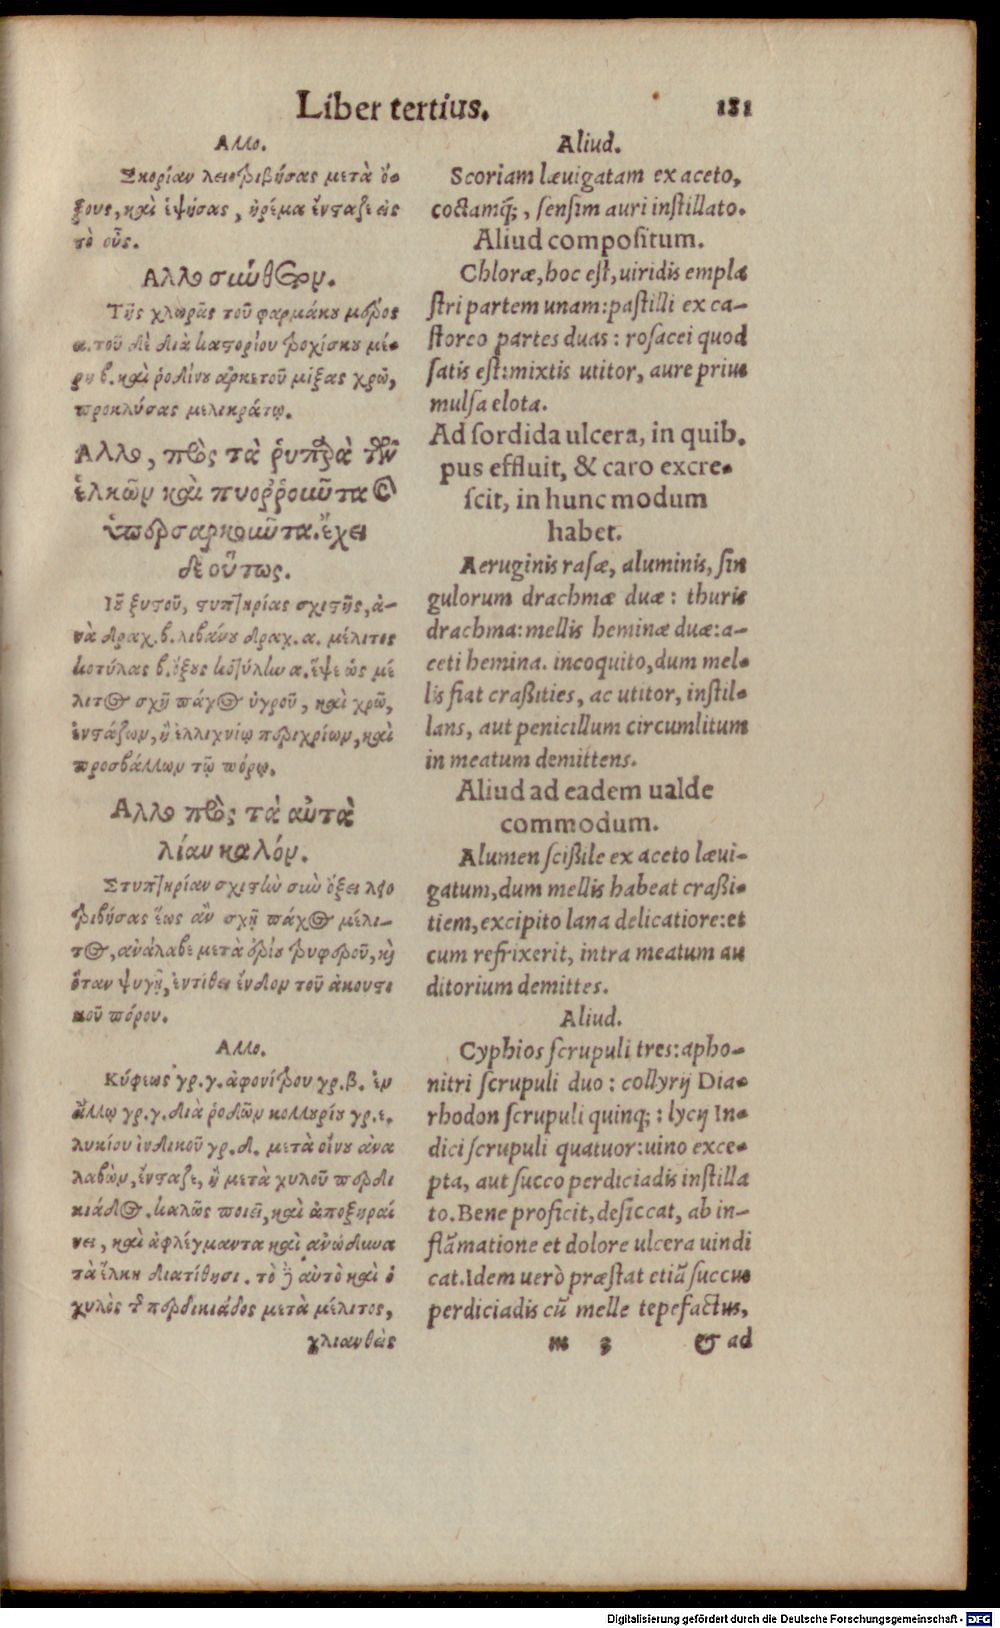 Liber tertius. 181
Αλλο.
Σκορίαν λειοτριβήσας μετὰ ὄ-
ξους, καὶ ἑψήσας, ἠρέμα ἔνσταζε εἰς
τὸ οὖς.
Αλλο σύνθετον.
Τῆς χλωρᾶς τοῦ φαρμάκου μέρος
α. τοῦ δὲ διὰ καστορίου τροχίσκου μέ-
ρη β. καὶ ῥοδίνου ἀρκετοῦ μίξας χρῶ,
προκλύσας μελικράτῳ.
Αλλο, πρὸς τὰ ῥυπαρὰ τῶν
ἑλκῶν καὶ πυοῤῥοοῦντα καὶ
ὑπερσαρκοῦντα. ἔχει
δὲ οὕτως.
Ιοῦ ξυστοῦ, στυπτηρίας σχιστῆς, ἀ-
νὰ δραχ. β. λιβάνου δραχ. α. μέλιτος
κοτύλας β. ὄξους κοτύλην α. ἕψε ὡς μέ
λιτος σχῇ πάχος ὑγροῦ, καὶ χρῶ,
ἐνστάζων, ἢ ἐλλιχνίῳ περιχρίων, καὶ
προσβάλλων τῷ πόρῳ.
Αλλο πρὸς τὰ αὐτὰ
λίαν καλόν.
Στυπτηρίαν σχιστὴν σὺν ὄξει λειο
τριβήσας ἕως ἂν σχῇ πάχος μέλι-
τος, ἀνάλαβε μετὰ ἐρίου τρυφεροῦ, καὶ
ὅταν ψυγῇ, ἐντίθει ἔνδον τοῦ ἀκουστι
κοῦ πόρου.
Αλλο.
Κύφεως γρ. γ. ἀφονίτρου γρ. β. ἐν
ἄλλῳ γρ. γ. διὰ ῥοδῶν κολλυρίου γρ. ε.
λυκίου ἰνδικοῦ γρ. δ. μετὰ οἴνου ἀνα
λαβὼν, ἔνσταζε, ἢ μετὰ χυλοῦ περδι
κιάδος. καλῶς ποιεῖ, καὶ ἀποξηραί
νει, καὶ ἀφλέγμαντα καὶ ἀνώδυνα
τὰ ἕλκη διατίθησι. τὸ δ' αὐτὸ καὶ ὁ
χυλὸς τῆς περδικιάδος μετὰ μέλιτος,
χλιανθεὶς
Aliud.
Scoriam læuigatam ex aceto,
coctamq́;, sensim auri instillato.
Aliud compositum.
Chloræ, hoc est, uiridis empla
stri partem unam: pastilli ex ca-
storeo partes duas: rosacei quod
satis est: mixtis utitor, aure prius
mulsa elota.
Ad sordida ulcera, in quib.
pus effluit, & caro excre-
scit, in hunc modum
habet.
Aeruginis rasæ, aluminis, sin
gulorum drachmæ duæ: thuris
drachma: mellis heminæ duæ: a-
ceti hemina. incoquito, dum mel-
lis fiat craßities, ac utitor, instil-
lans, aut penicillum circumlitum
in meatum demittens.
Aliud ad eadem ualde
commodum.
Alumen scißile ex aceto læui-
gatum, dum mellis habeat craßi-
tiem, excipito lana delicatiore: et
cum refrixerit, intra meatum au
ditorium demittes.
Aliud.
Cyphios scrupuli tres: apho-
nitri scrupuli duo: collyrij Dia-
rhodon scrupuli quinq;: lycij In-
dici scrupuli quatuor: uino exce-
pta, aut succo perdiciadis instilla
to. Bene proficit, desiccat, ab in-
flãmatione et dolore ulcera uindi
cat. Idem uerò præstat etiã succus
perdiciadis cũ melle tepefactus,
m 3 & ad
Digitalisierung gefördert durch die Deutsche Forschungsgemeinschaft - DFG